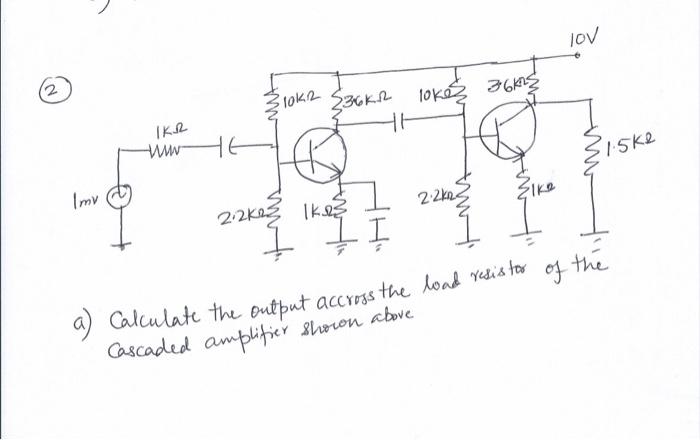 2
10V
10KΩ
36KΩ
10KΩ
36KΩ
1KΩ
1mv
2.2KΩ
1KΩ
2.2KΩ
1KΩ
1.5KΩ
a) Calculate the output accross the load resistor of the
Cascaded amplifier shown above